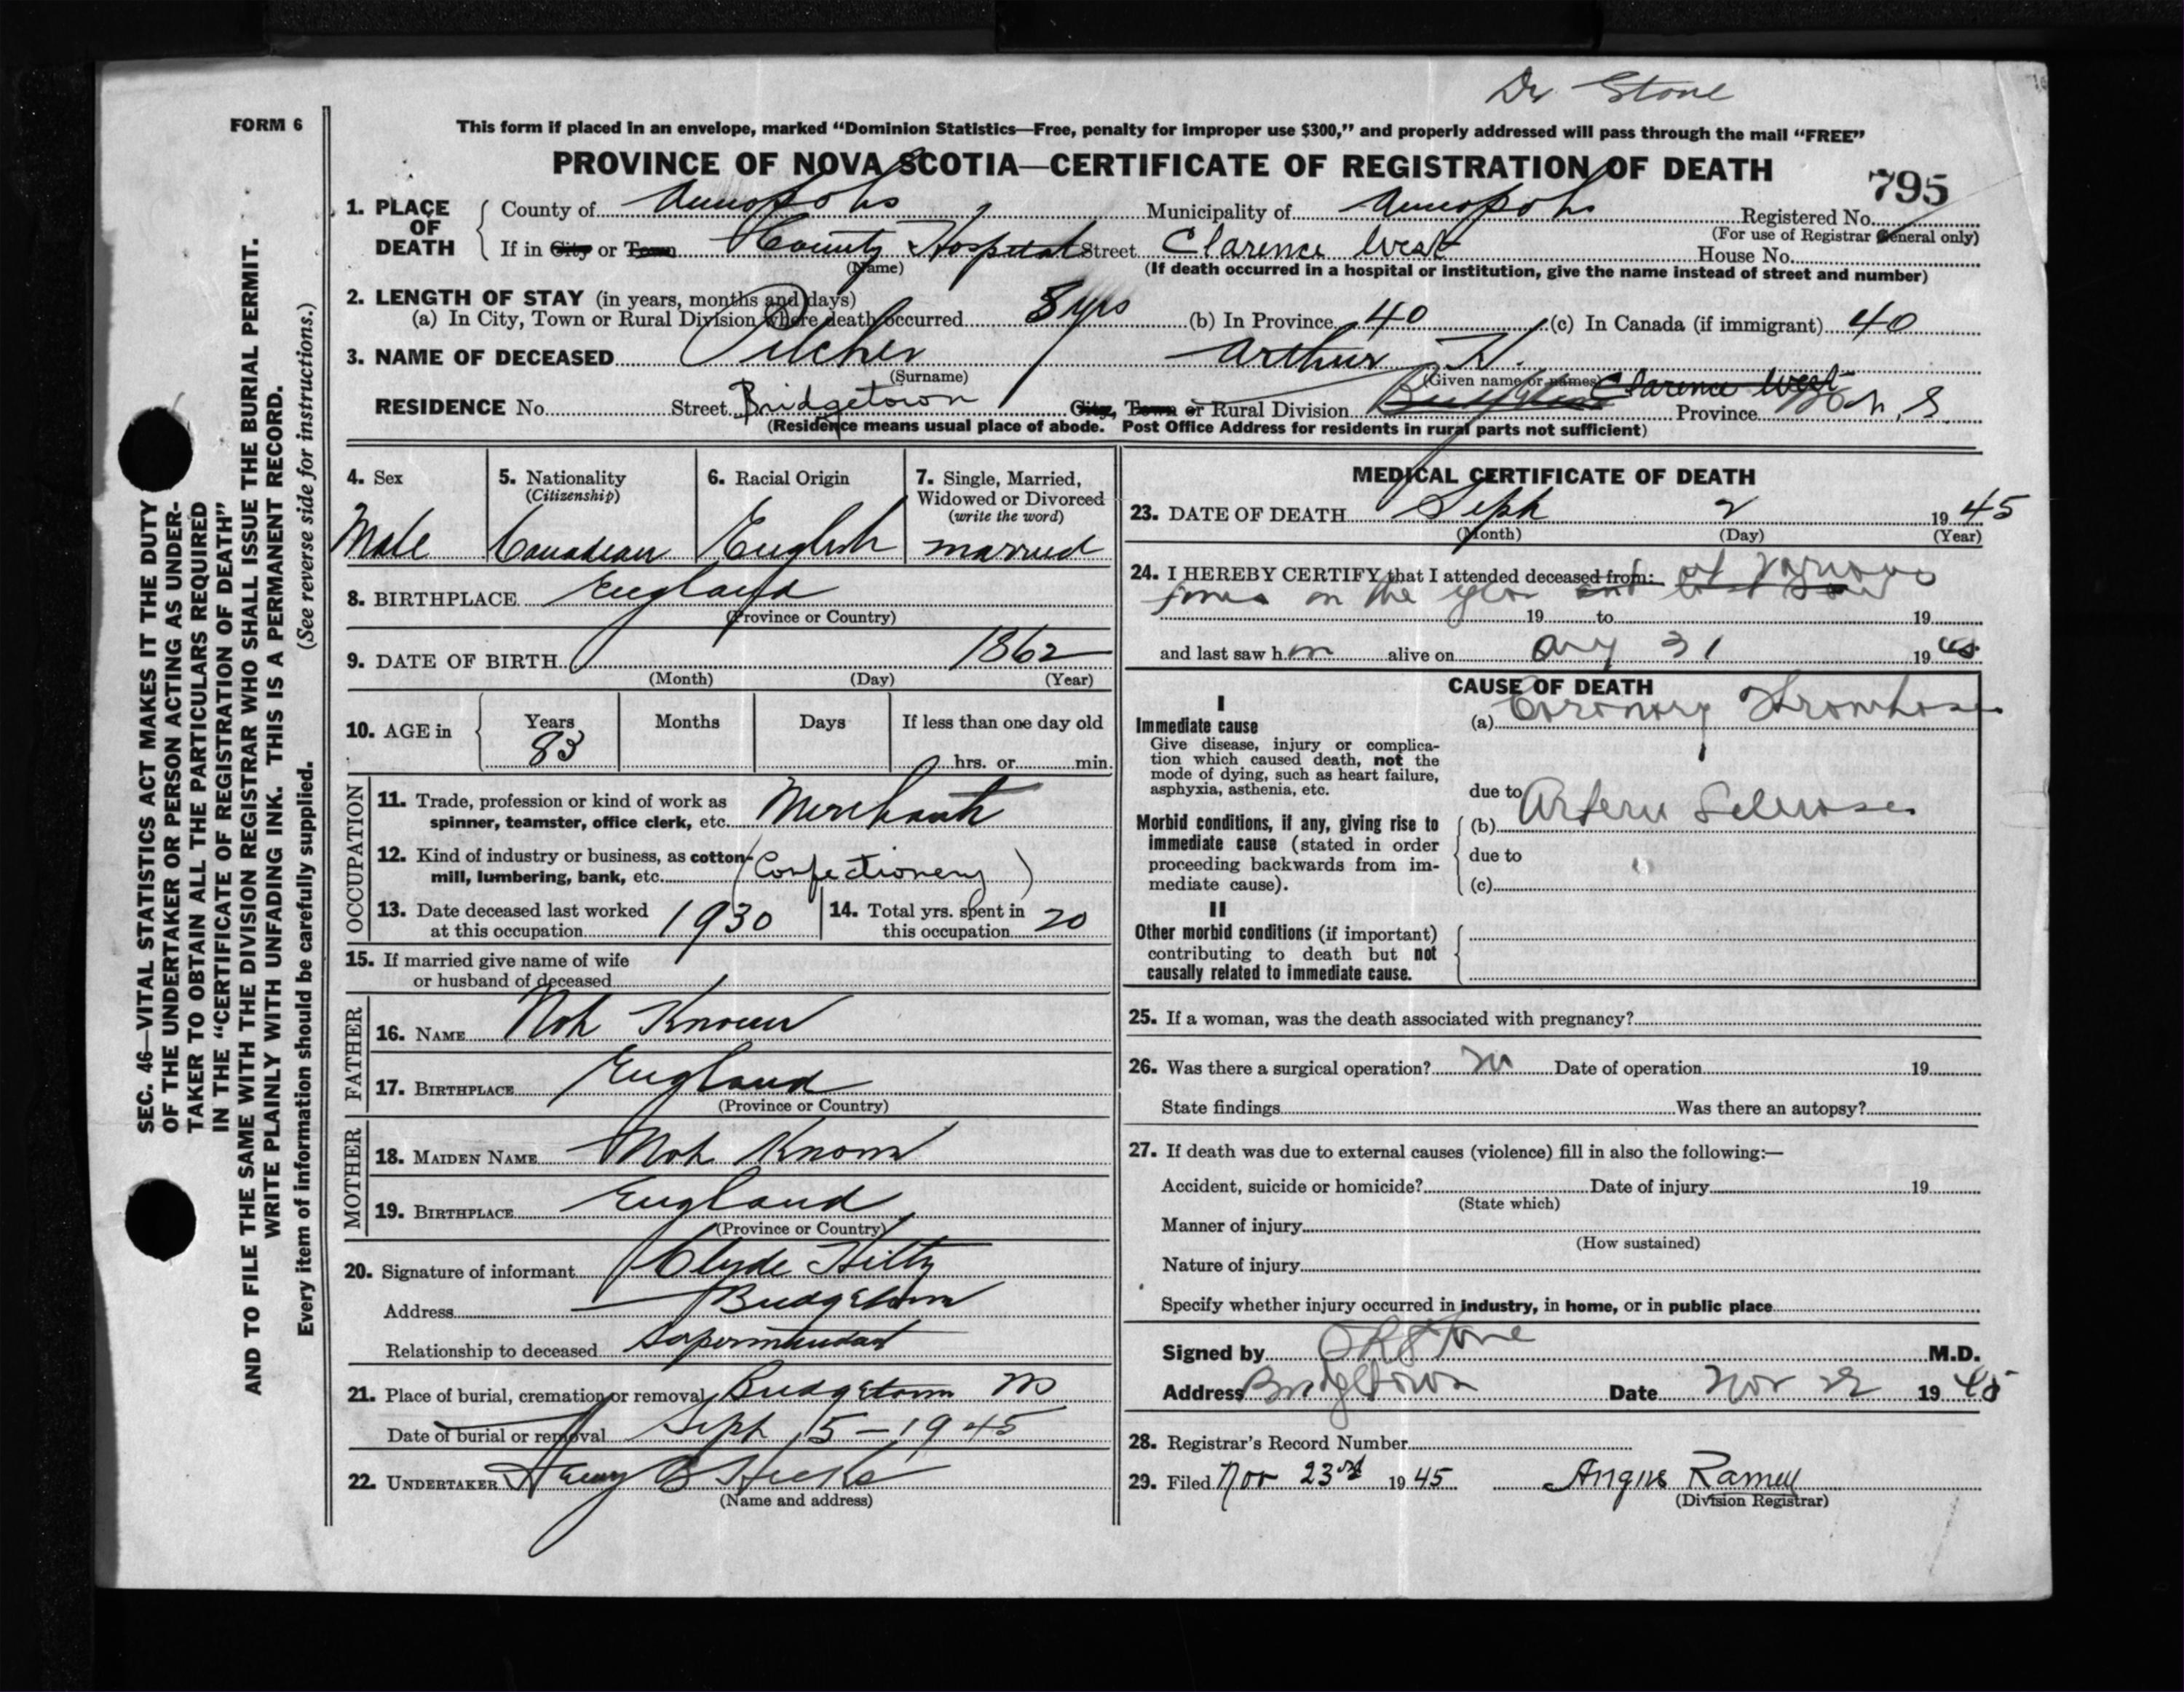 Dr Stone
FORM 6
This form if placed in an envelope, marked "Dominion Statistics—Free, penalty for improper use $300," and properly addressed will pass through the mail "FREE"
PROVINCE OF NOVA SCOTIA—CERTIFICATE OF REGISTRATION OF DEATH
795
1. PLACE OF DEATH
County of Annapolis Municipality of Annapolis Registered No.
(For use of Registrar General only)
If in City or Town County Hospital Street Clarence West House No.
(Name) (If death occurred in a hospital or institution, give the name instead of street and number)
2. LENGTH OF STAY (in years, months and days)
(a) In City, Town or Rural Division where death occurred 8 yrs (b) In Province 40 (c) In Canada (if immigrant) 40
3. NAME OF DECEASED Pilcher Arthur H.
(Surname) (Given name or names)
Clarence West
RESIDENCE No. Street Bridgetown City, Town or Rural Division Province N. S.
(Residence means usual place of abode. Post Office Address for residents in rural parts not sufficient)
4. Sex
Male
5. Nationality
(Citizenship)
Canadian
6. Racial Origin
English
7. Single, Married,
Widowed or Divorced
(write the word)
married
8. BIRTHPLACE England
(Province or Country)
9. DATE OF BIRTH 1862
(Month) (Day) (Year)
10. AGE in Years Months Days If less than one day old
83
hrs. or min.
OCCUPATION
11. Trade, profession or kind of work as
spinner, teamster, office clerk, etc. Merchant
12. Kind of industry or business, as cotton-
mill, lumbering, bank, etc. (Confectionery)
13. Date deceased last worked
at this occupation 1930
14. Total yrs. spent in
this occupation 20
15. If married give name of wife
or husband of deceased
FATHER
16. NAME Not Known
17. BIRTHPLACE England
(Province or Country)
MOTHER
18. MAIDEN NAME Not Known
19. BIRTHPLACE England
(Province or Country)
20. Signature of informant Clyde Hiltz
Address Bridgetown
Relationship to deceased Superintendant
21. Place of burial, cremation or removal Bridgetown NS
Date of burial or removal Sept 5 – 1945
22. UNDERTAKER Henry B Hicks
(Name and address)
MEDICAL CERTIFICATE OF DEATH
23. DATE OF DEATH Sept 2 19 45
(Month) (Day) (Year)
24. I HEREBY CERTIFY that I attended deceased from: at various
times in the year and last saw
19 to 19
and last saw h im alive on Aug 31 19 45
CAUSE OF DEATH
I
Immediate cause
Give disease, injury or complica-
tion which caused death, not the
mode of dying, such as heart failure,
asphyxia, asthenia, etc.
(a) Coronary Thrombosis
due to
Morbid conditions, if any, giving rise to
immediate cause (stated in order
proceeding backwards from im-
mediate cause).
(b) Arterio Sclerosis
due to
(c)
II
Other morbid conditions (if important)
contributing to death but not
causally related to immediate cause.
25. If a woman, was the death associated with pregnancy?
26. Was there a surgical operation? no Date of operation 19
State findings Was there an autopsy?
27. If death was due to external causes (violence) fill in also the following:—
Accident, suicide or homicide? Date of injury 19
(State which)
Manner of injury
(How sustained)
Nature of injury
Specify whether injury occurred in industry, in home, or in public place
Signed by Stone M.D.
Address Bridgetown Date Nov 22 19 45
28. Registrar's Record Number
29. Filed Nov 23rd 19 45 Angus Ramey
(Division Registrar)
SEC. 46—VITAL STATISTICS ACT MAKES IT THE DUTY
OF THE UNDERTAKER OR PERSON ACTING AS UNDER-
TAKER TO OBTAIN ALL THE PARTICULARS REQUIRED
IN THE "CERTIFICATE OF REGISTRATION OF DEATH"
AND TO FILE THE SAME WITH THE DIVISION REGISTRAR WHO SHALL ISSUE THE BURIAL PERMIT.
WRITE PLAINLY WITH UNFADING INK. THIS IS A PERMANENT RECORD.
Every item of information should be carefully supplied. (See reverse side for instructions.)